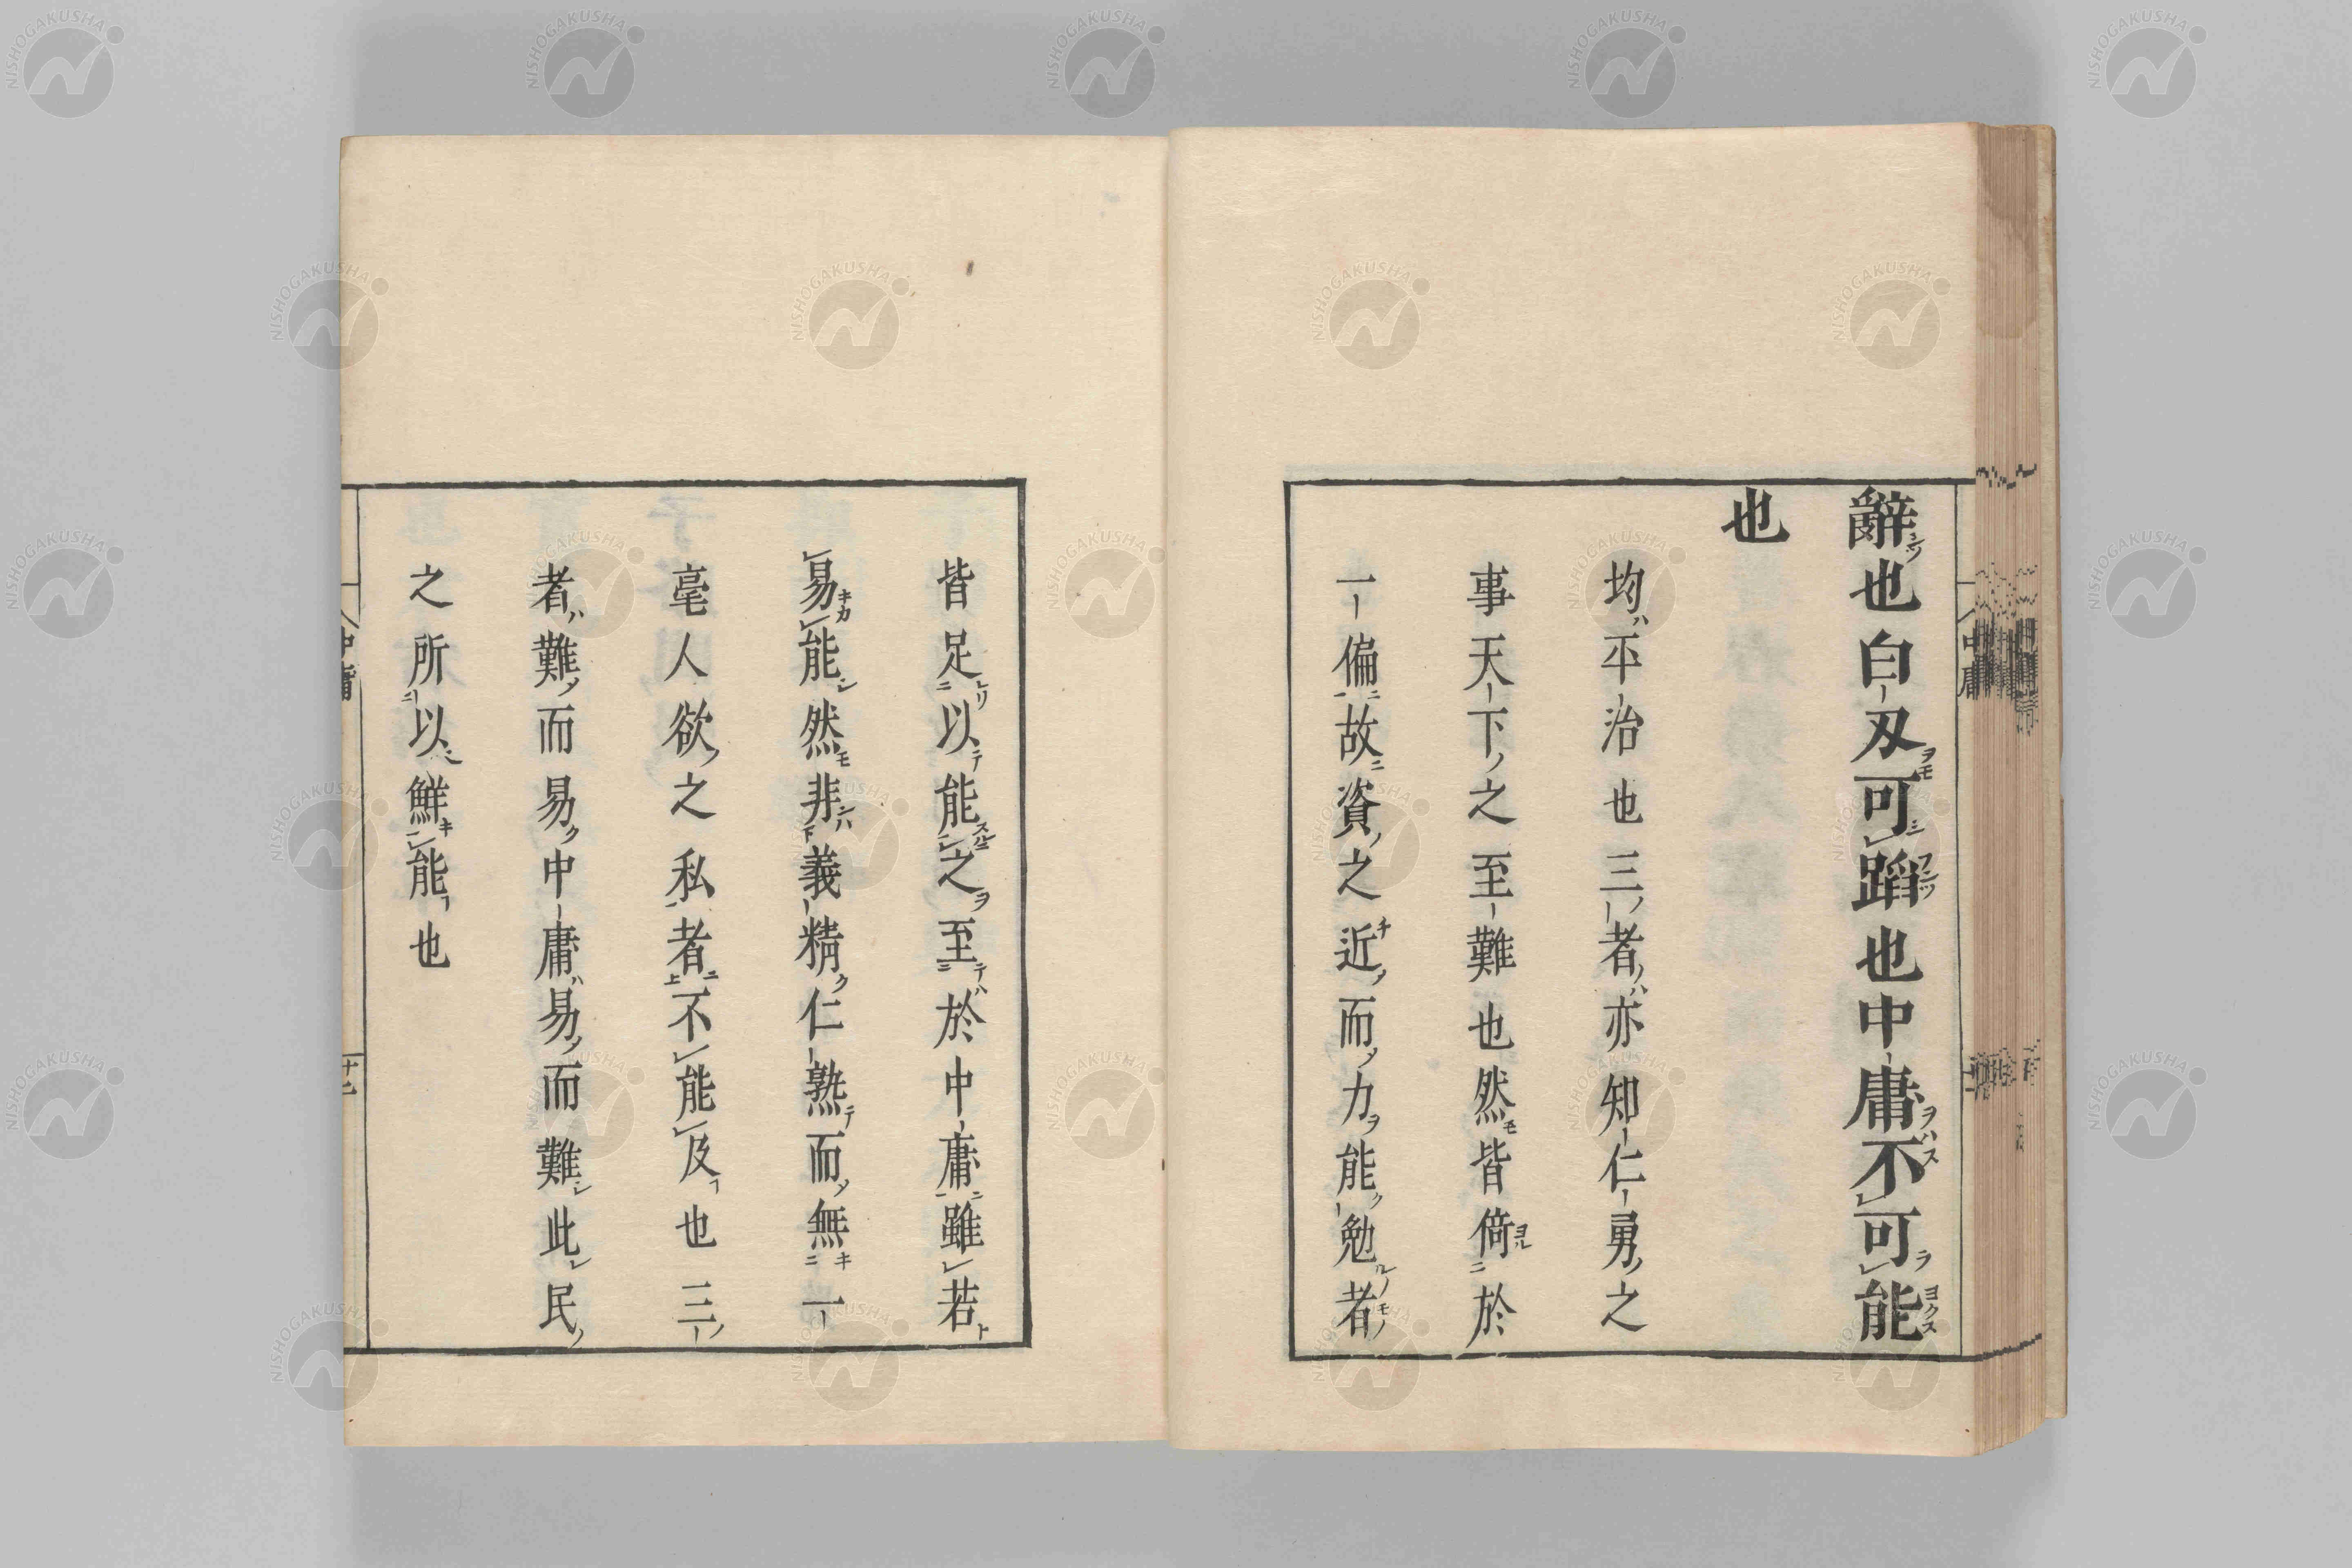 辭也白刃可蹈也中庸不可能
也
均平治也三者亦知仁勇之
事天下之至難也然皆倚於
一偏故資之近而力能勉者
皆足以能之至於中庸雖若
易能然非義精仁熟而無一
毫人欲之私者不能及也三
者難而易中庸易而難此民
之所以鮮能也
中庸
十二
NISHOGAKUSHA